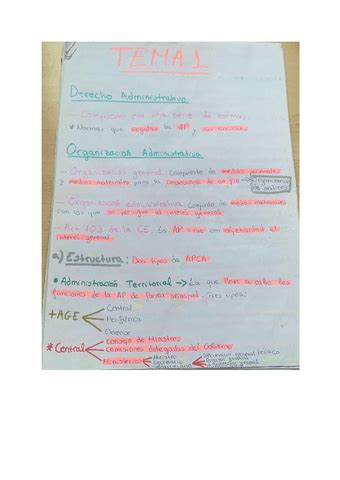 TEMA 1
Derecho Administrativo
- Compuesto por una serie de normas.
* Normas que regulan la AP, y sus
Organización Administrativa
- Organización general: Conjunto de medios personales
y medios materiales para la consecución de un fin
Organización
- Organización administrativa: Conjunto de medios materiales
con los que se persigue el interés general.
- Art 103 de la CE. La AP sirve con objetividad el
interés general.
a) Estructura: Dos tipos de APCA.
* Administración Territorial → La que lleva a cabo las
funciones de la AP de forma principal. Tres tipos:
+ AGE
Central
Periférica
Exterior
* Central
Consejo de Ministros
Comisiones delegadas del Gobierno
Ministerios
Ministro